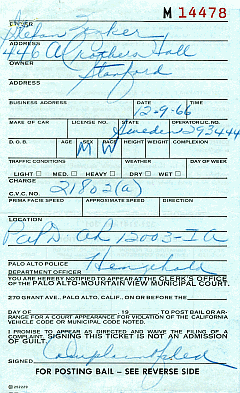 M 14478
DRIVER
446 A Crothers Hall
OWNER
Stanford
ADDRESS
BUSINESS ADDRESS DATE TIME
12-9-66
MAKE OF CAR LICENSE NO. STATE OPERATOR LIC. NO.
Sweden 293444
D. O. B. AGE SEX RACE HEIGHT WEIGHT COMPLEXION
M W
TRAFFIC CONDITIONS WEATHER DAY OF WEEK
LIGHT MED. HEAVY DRY WET
CHARGE
C.V.C. NO. 21802(a)
PRIMA FACIE SPEED APPROXIMATE SPEED DIRECTION
LOCATION
12003-I A
PALO ALTO POLICE
DEPARTMENT OFFICER
YOU ARE HEREBY NOTIFIED TO APPEAR AT THE CLERK'S OFFICE
OF THE PALO ALTO-MOUNTAIN VIEW MUNICIPAL COURT.
270 GRANT AVE., PALO ALTO, CALIF., ON OR BEFORE THE
DAY OF , 19 TO POST BAIL OR AR-
RANGE FOR A COURT APPEARANCE FOR VIOLATION OF THE CALIFORNIA
VEHICLE CODE OR MUNICIPAL CODE NOTED.
I PROMISE TO APPEAR AS DIRECTED AND WAIVE THE FILING OF A
COMPLAINT. SIGNING THIS TICKET IS NOT AN ADMISSION
OF GUILT.
SIGNED Complaint filed
FOR POSTING BAIL – SEE REVERSE SIDE